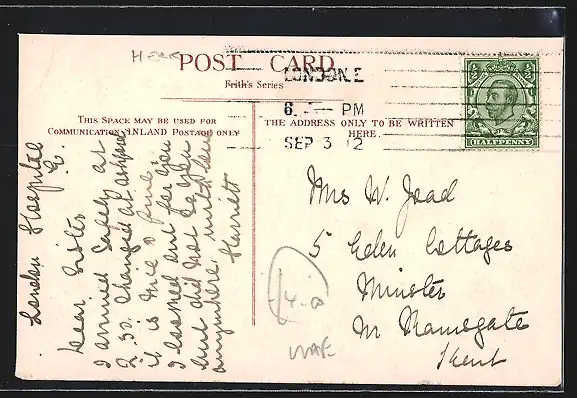 POST CARD
Frith's Series
THIS SPACE MAY BE USED FOR
COMMUNICATION INLAND POSTAGE ONLY
THE ADDRESS ONLY TO BE WRITTEN
HERE.
LONDON. E
6. PM
SEP 3 12
½ ½
HALFPENNY
London Hospital
E.
Dear Sister
I arrived safely at
2.30. Changed at
it is nice & fine
I looked out for you
but did not see you
anywhere. with love
Harriett
Mrs W. Joad
5 Eden Cottages
Minster
Nr Ramsgate
Kent
£4.00